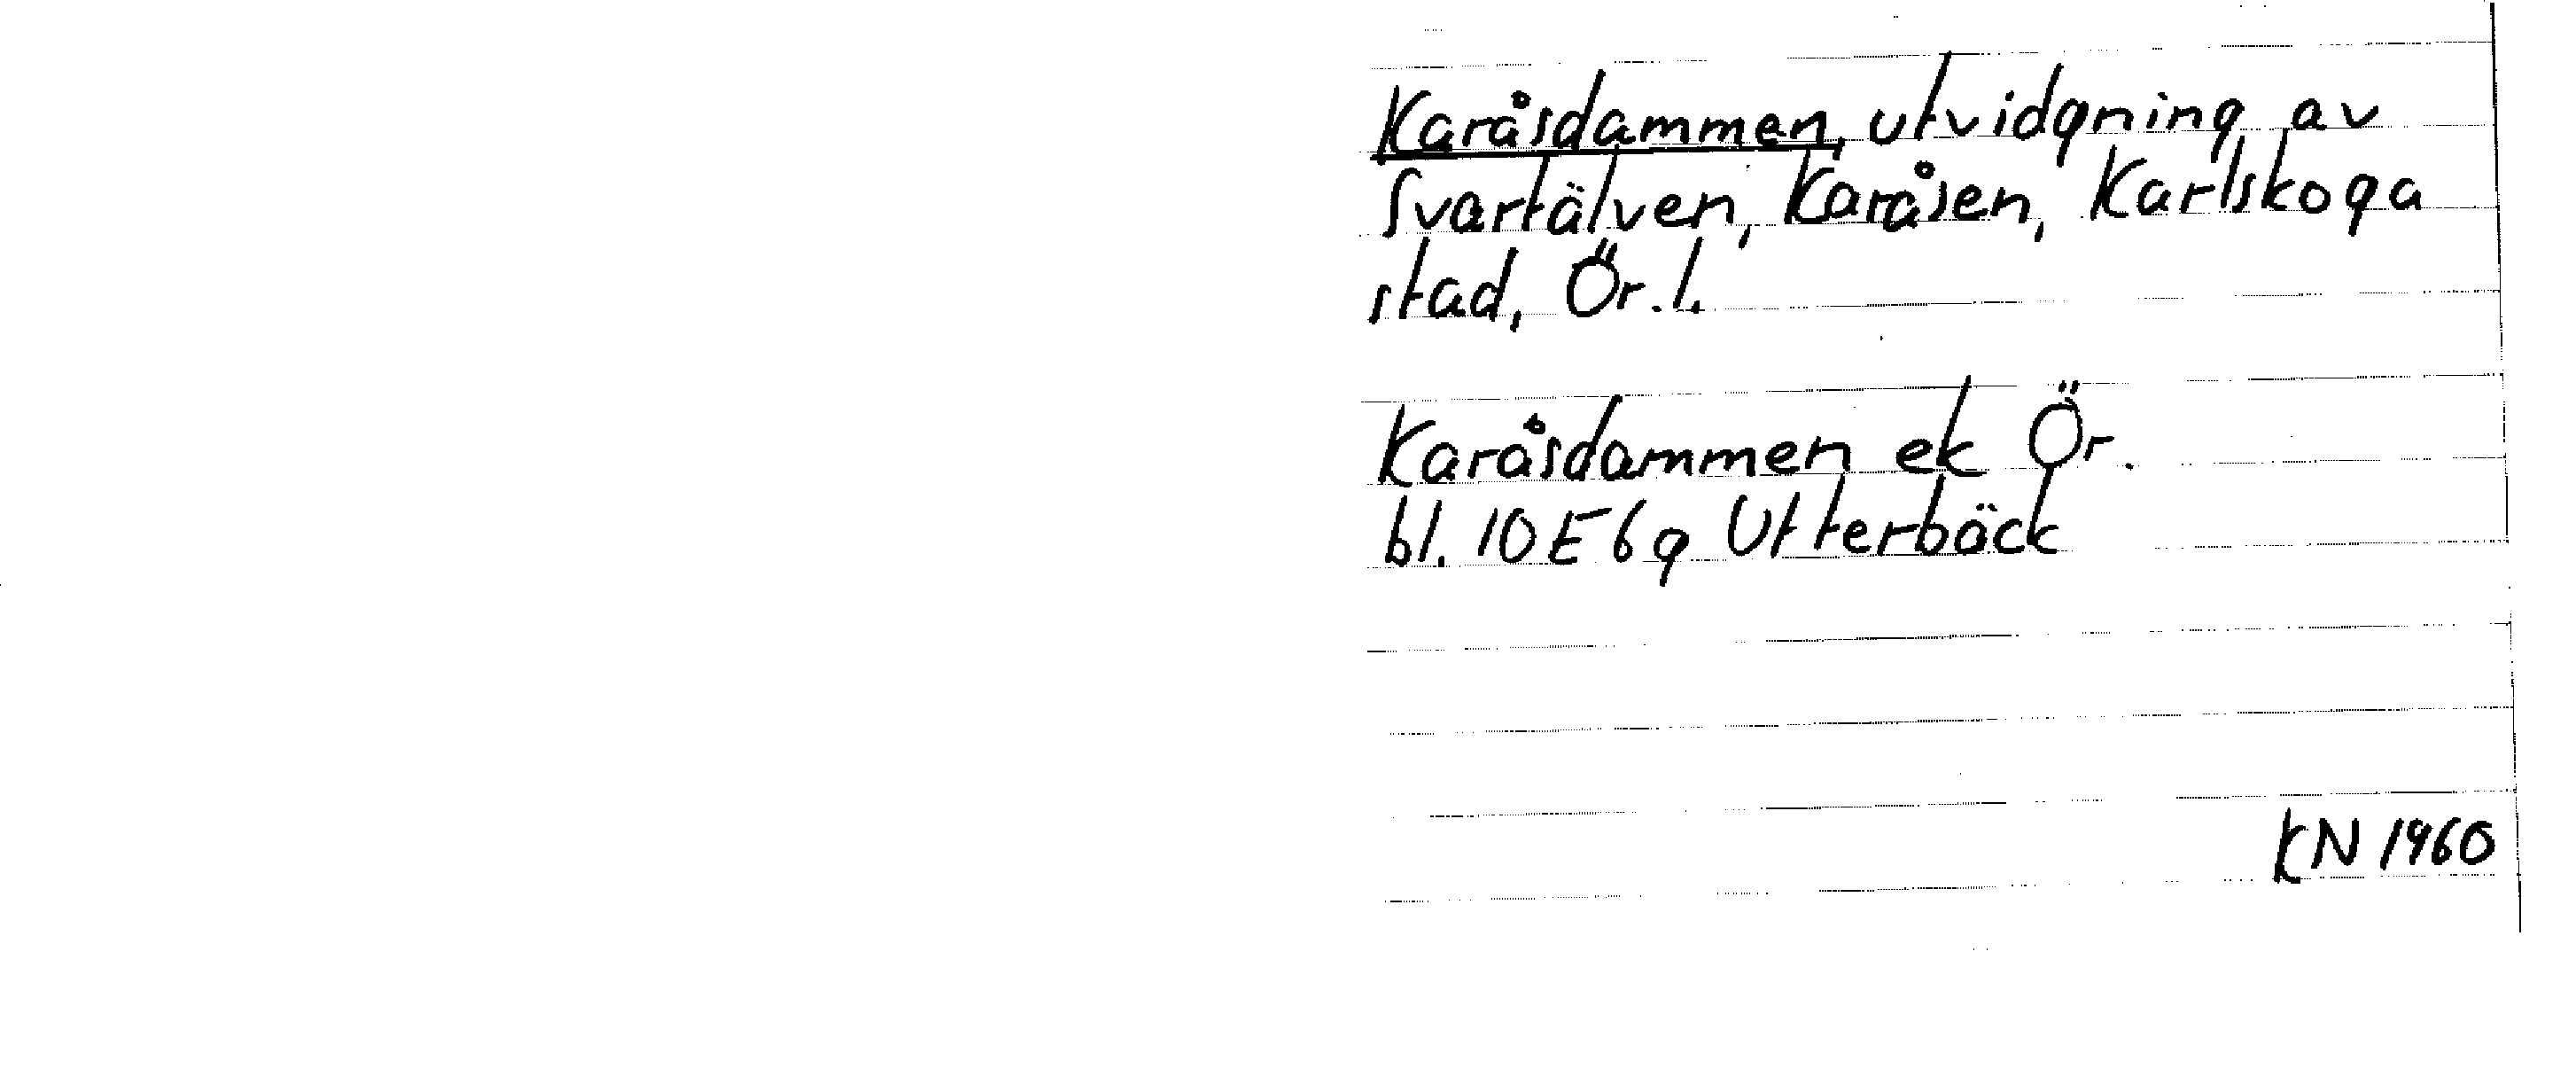 Karåsdammen, utvidgning av
Svartälven, Karåsen, Karlskoga
stad, Ör. l.
Karåsdammen ek Ör.
bl. 10 E 6 g Utterbäck
KN 1960